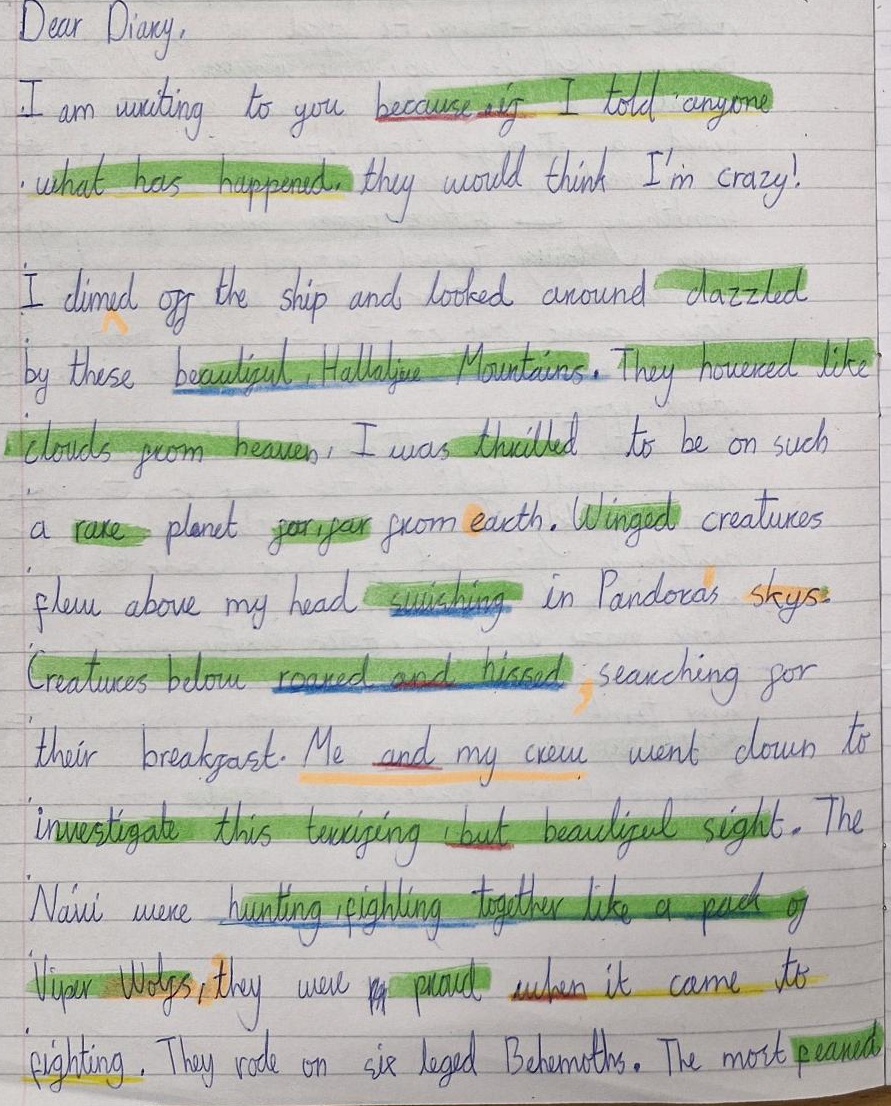 Dear Diary,
I am writing to you because if I told anyone
what has happened, they would think I'm crazy!
I climed off the ship and looked around dazzled
by these beautiful, Hallaljue Mountains. They hovered like
clouds from heaven, I was thrilled to be on such
a rare planet far, far from earth. Winged creatures
flew above my head swishing in Pandora's skys.
Creatures below roared and hissed, searching for
their breakfast. Me and my crew went down to
investigate this terrifing, but beautiful sight. The
Navi were hunting, fighting together like a pack of
Viper Wolfs, they were proud when it came to
fighting. They rode on six leged Behemoths. The most feared